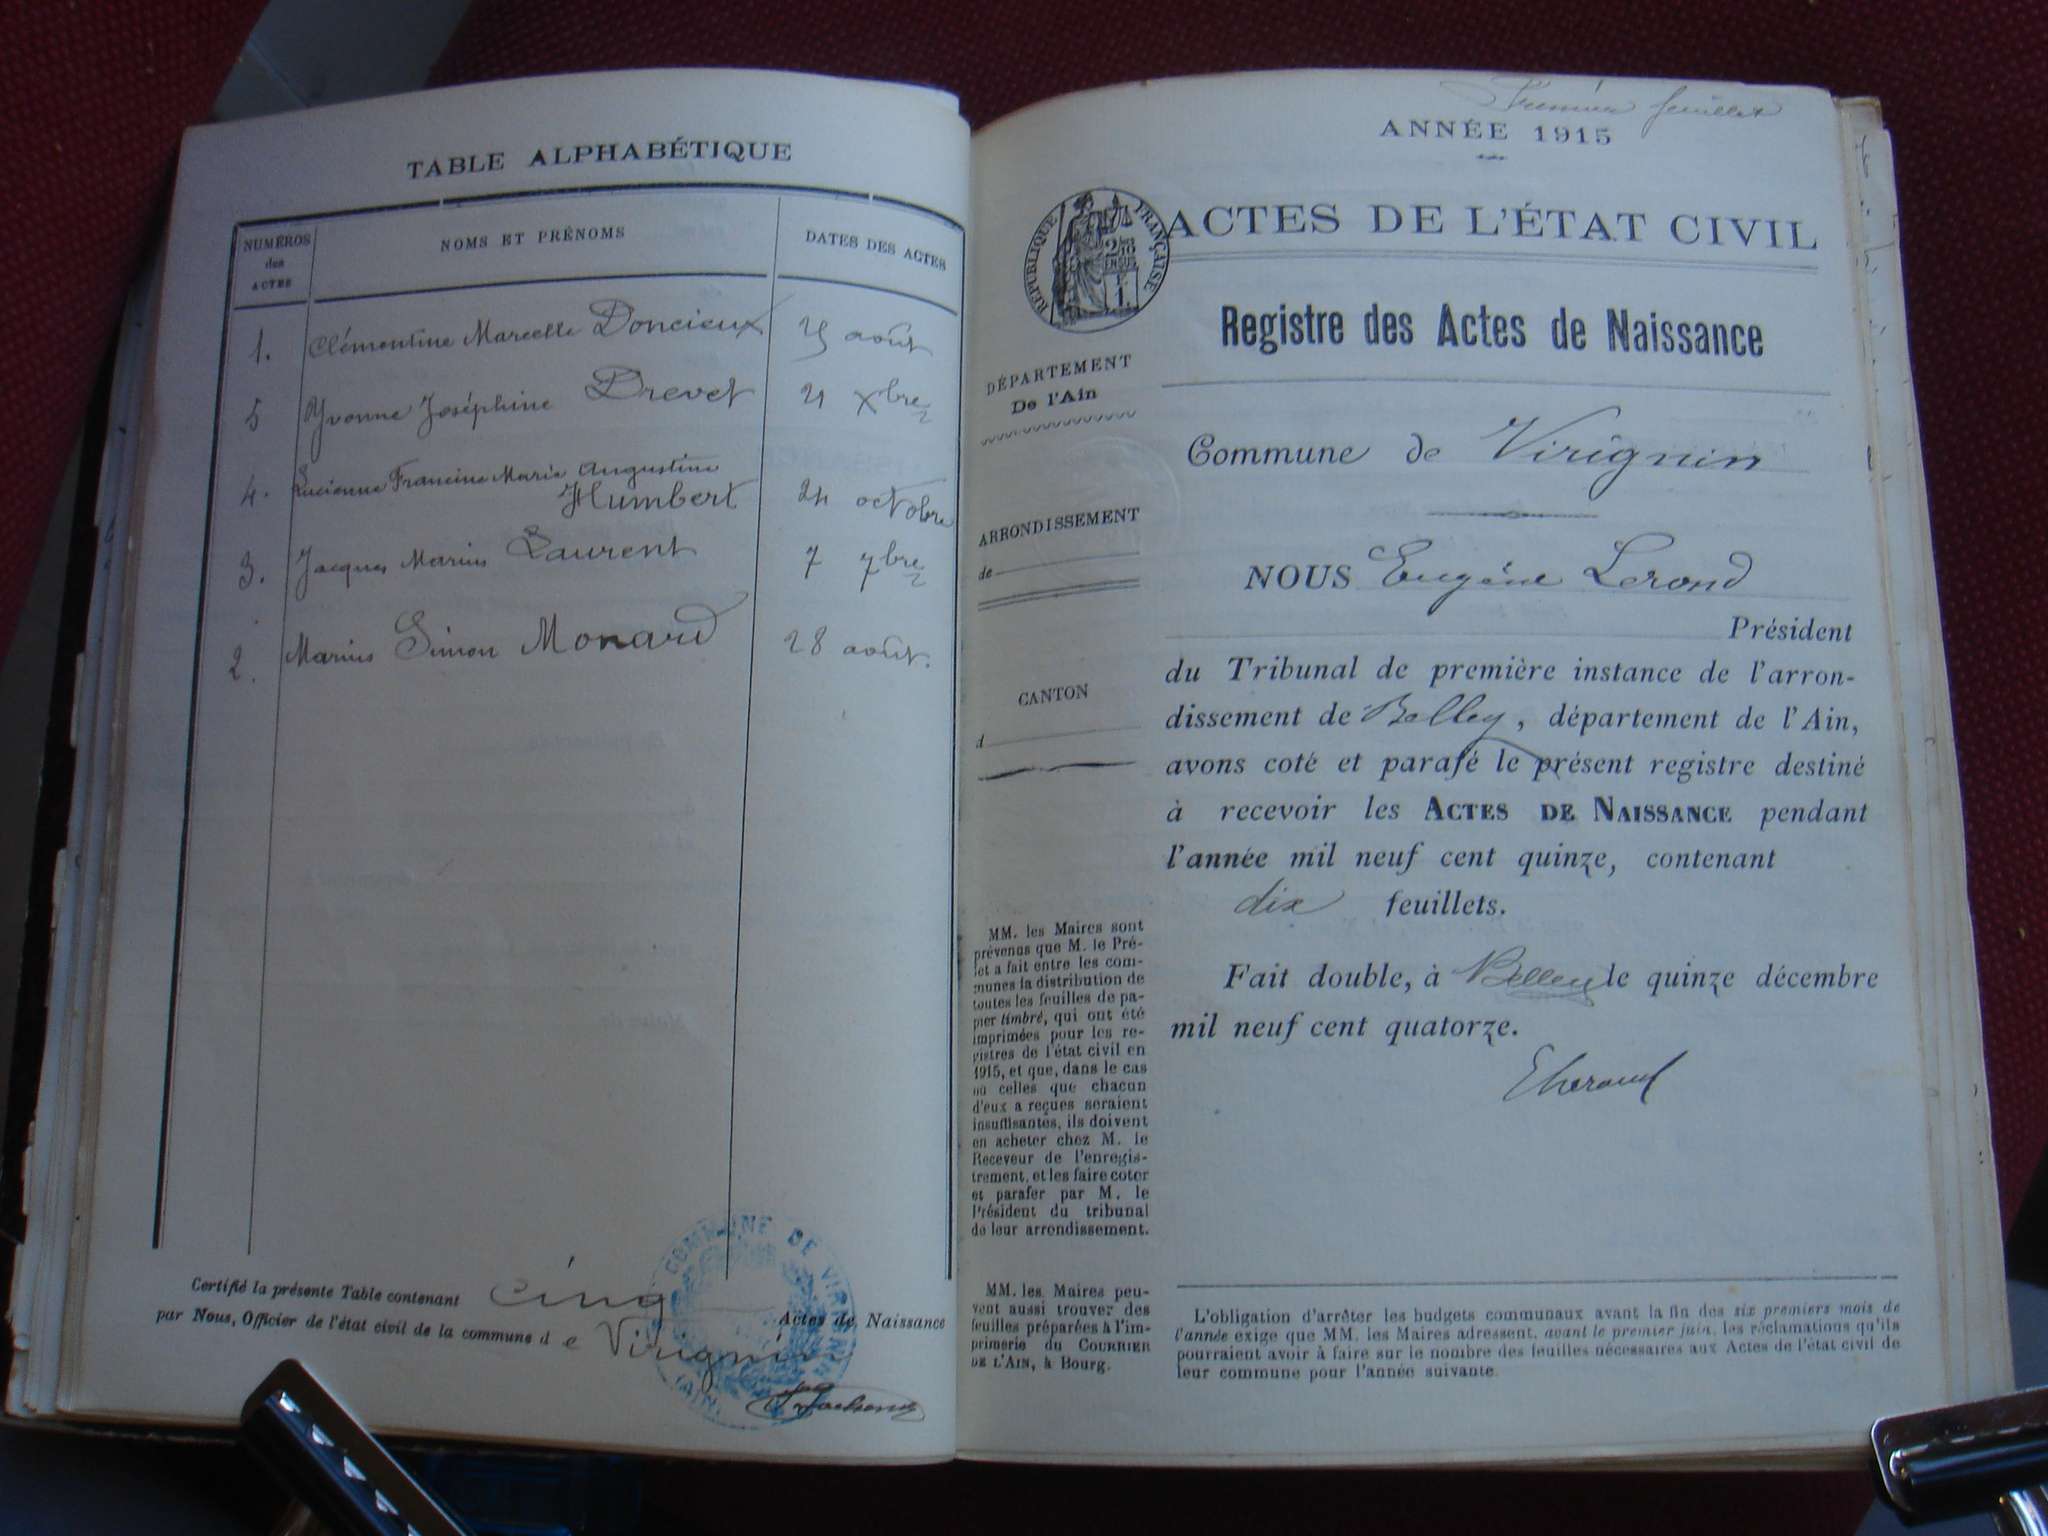 TABLE ALPHABÉTIQUE
NUMÉROS
des
ACTES
NOMS ET PRÉNOMS
DATES DES ACTES
1. Clémentine Marcelle Doncieux août
5 Yvonne Joséphine Drevet 21 Xbre
4. Lucienne Francine Marie Augustine
Humbert 24 octobre
3. Jacques Marius Laurent 7 7bre
2. Marius Simon Monard 28 août.
Certifié la présente Table contenant cinq Actes de Naissance
par Nous, Officier de l'état civil de la commune de Virignin
COMMUNE DE VIRIGNIN
(AIN)
Premier feuillet
ANNÉE 1915
RÉPUBLIQUE FRANÇAISE
ACTES DE L'ÉTAT CIVIL
Registre des Actes de Naissance
DÉPARTEMENT
De l'Ain
Commune de Virignin
ARRONDISSEMENT
de
NOUS Eugène Lerond
Président
du Tribunal de première instance de l'arron-
dissement de Belley, département de l'Ain,
CANTON
d
avons coté et parafé le présent registre destiné
à recevoir les ACTES DE NAISSANCE pendant
l'année mil neuf cent quinze, contenant
dix feuillets.
Fait double, à Belley le quinze décembre
mil neuf cent quatorze.
MM. les Maires sont
prévenus que M. le Pré-
fet a fait entre les com-
munes la distribution de
toutes les feuilles de pa-
pier timbré, qui ont été
imprimées pour les re-
gistres de l'état civil en
1915, et que, dans le cas
où celles que chacun
d'eux a reçues seraient
insuffisantes, ils doivent
en acheter chez M. le
Receveur de l'enregis-
trement, et les faire coter
et parafer par M. le
Président du tribunal
de leur arrondissement.
MM. les Maires peu-
vent aussi trouver des
feuilles préparées à l'im-
primerie du COURRIER
DE L'AIN, à Bourg.
L'obligation d'arrêter les budgets communaux avant la fin des six premiers mois de
l'année exige que MM. les Maires adressent, avant le premier juin, les réclamations qu'ils
pourraient avoir à faire sur le nombre des feuilles nécessaires aux Actes de l'état civil de
leur commune pour l'année suivante.